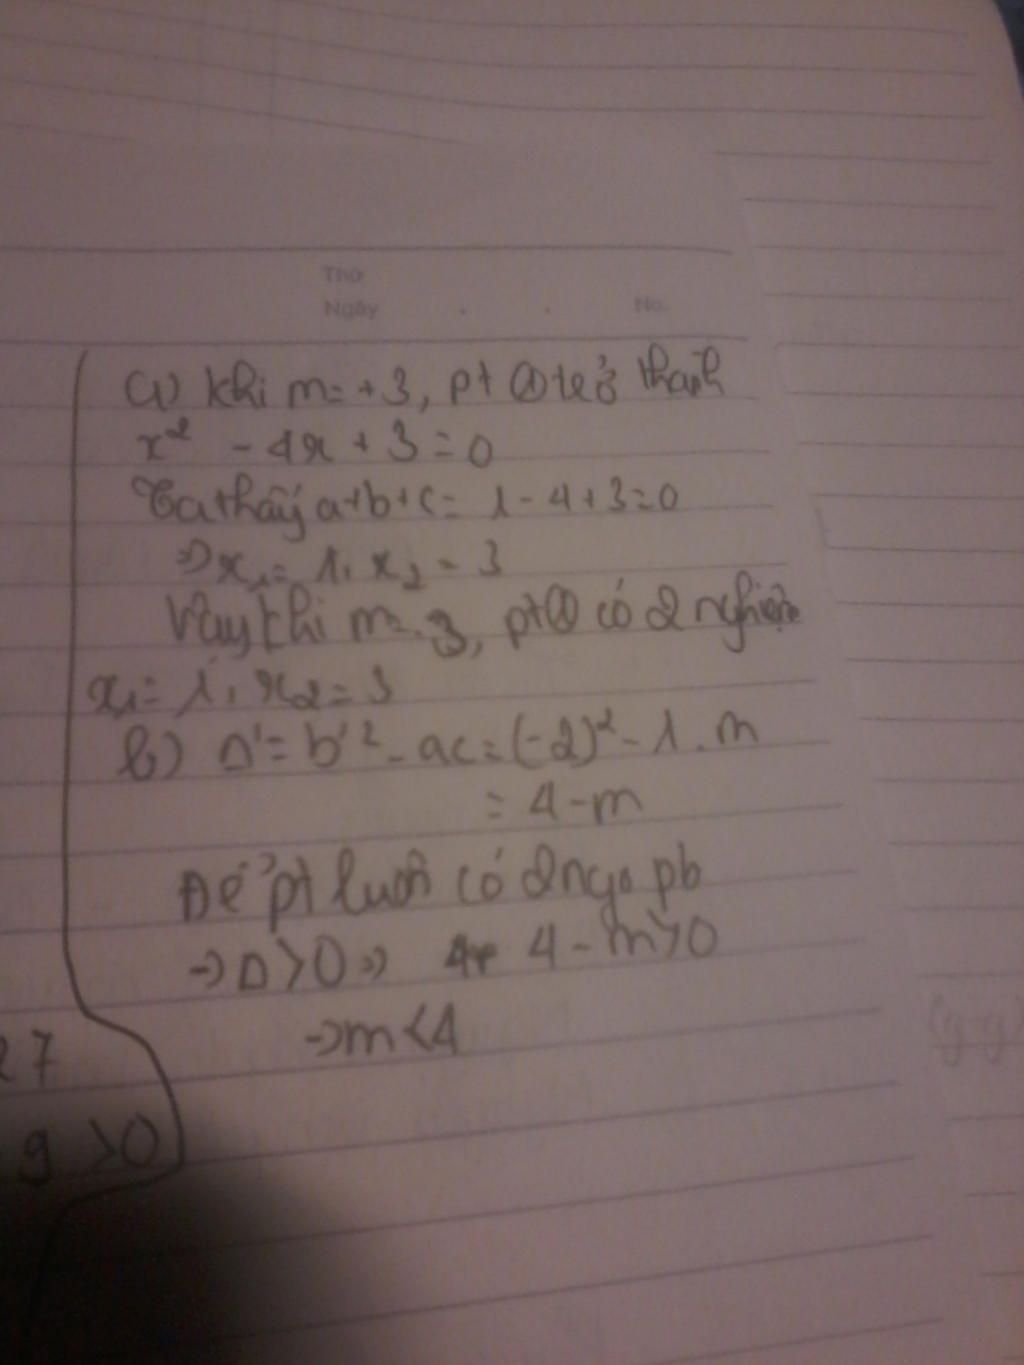 Thứ
Ngày . . No.
a) khi m = +3, pt ① trở thành
x² - 4x + 3 = 0
Ta thấy a+b+c = 1 - 4 + 3 = 0
⇒ x₁ = 1, x₂ = 3
Vậy khi m = 3, pt① có 2 nghiệm
x₁ = 1, x₂ = 3
b) Δ' = b'² - ac = (-2)² - 1 . m
= 4 - m
Để pt luôn có 2 ngo pb
→ Δ > 0 ⇒ 4 - m > 0
→ m < 4
27
9 > 0